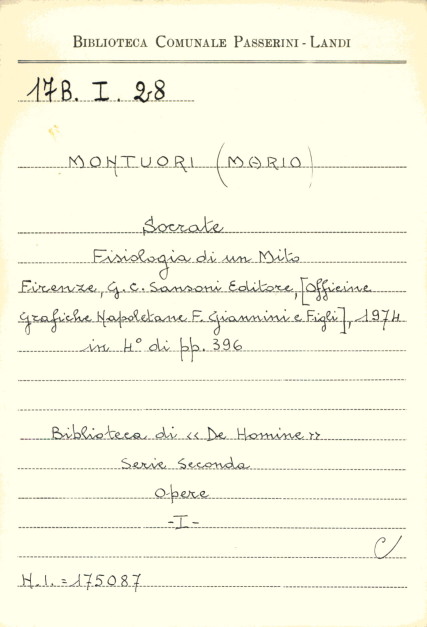 BIBLIOTECA COMUNALE PASSERINI - LANDI
17B. I. 28
MONTUORI (MARIO)
Socrate
Fisiologia di un Mito
Firenze, G.C. Sansoni Editore, [Officine
Grafiche Napoletane F. Giannini e Figli], 1974
in 4° di pp. 396
Biblioteca di « De Homine »
Serie Seconda
Opere
-I-
C
N.I. = 175087